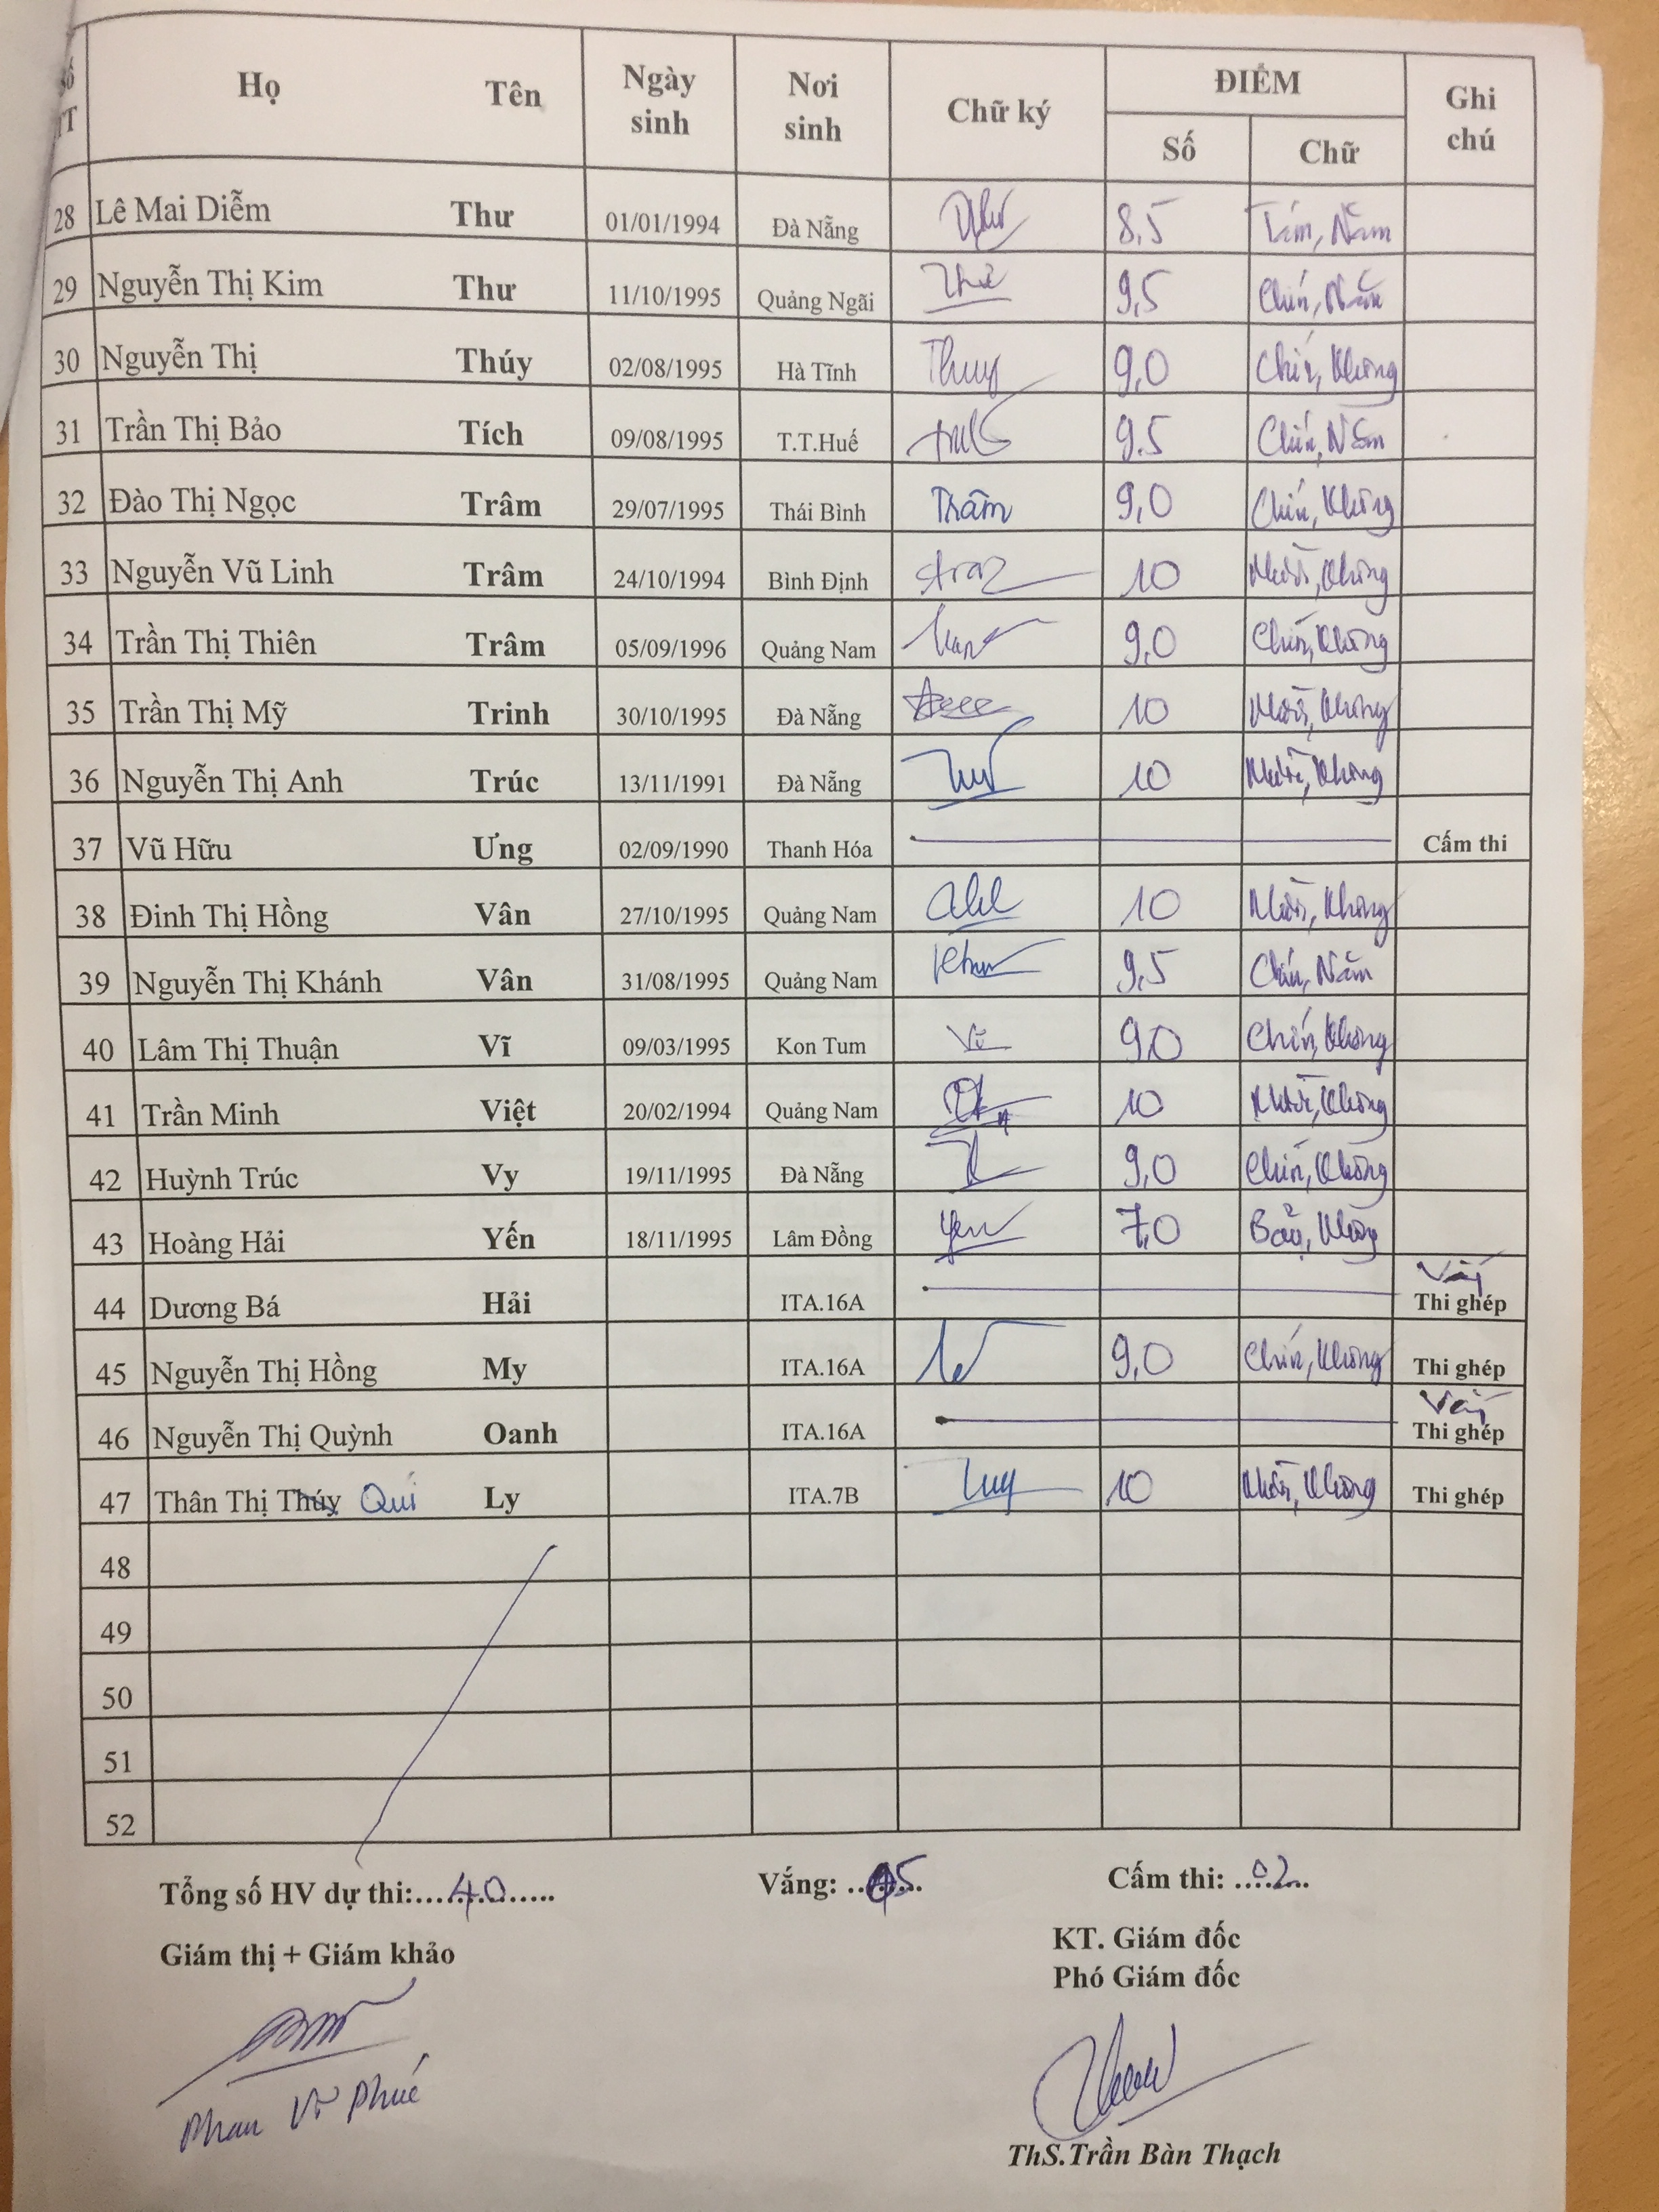 Số TT Họ Tên Ngày sinh Nơi sinh Chữ ký ĐIỂM Ghi chú
Số Chữ
28 Lê Mai Diễm Thư 01/01/1994 Đà Nẵng 8,5 Tám, Năm
29 Nguyễn Thị Kim Thư 11/10/1995 Quảng Ngãi Thư 9,5 Chín, Năm
30 Nguyễn Thị Thúy 02/08/1995 Hà Tĩnh Thuy 9,0 Chín, Không
31 Trần Thị Bảo Tích 09/08/1995 T.T.Huế 9.5 Chín, Năm
32 Đào Thị Ngọc Trâm 29/07/1995 Thái Bình Trâm 9,0 Chín, Không
33 Nguyễn Vũ Linh Trâm 24/10/1994 Bình Định 10 Mười, Không
34 Trần Thị Thiên Trâm 05/09/1996 Quảng Nam 9,0 Chín, Không
35 Trần Thị Mỹ Trinh 30/10/1995 Đà Nẵng 10 Mười, Không
36 Nguyễn Thị Anh Trúc 13/11/1991 Đà Nẵng 10 Mười, Không
37 Vũ Hữu Ưng 02/09/1990 Thanh Hóa Cấm thi
38 Đinh Thị Hồng Vân 27/10/1995 Quảng Nam 10 Mười, Không
39 Nguyễn Thị Khánh Vân 31/08/1995 Quảng Nam 9,5 Chín, Năm
40 Lâm Thị Thuận Vĩ 09/03/1995 Kon Tum Vĩ 9,0 Chín, Không
41 Trần Minh Việt 20/02/1994 Quảng Nam 10 Mười, Không
42 Huỳnh Trúc Vy 19/11/1995 Đà Nẵng 9,0 Chín, Không
43 Hoàng Hải Yến 18/11/1995 Lâm Đồng Yen 7,0 Bảy, Không
44 Dương Bá Hải ITA.16A Vắng Thi ghép
45 Nguyễn Thị Hồng My ITA.16A 9,0 Chín, Không Thi ghép
46 Nguyễn Thị Quỳnh Oanh ITA.16A Vắng Thi ghép
47 Thân Thị Thúy Quí Ly ITA.7B 10 Mười, Không Thi ghép
48
49
50
51
52
Tổng số HV dự thi:....40..... Vắng: ..05.. Cấm thi: ..02..
Giám thị + Giám khảo KT. Giám đốc
Phó Giám đốc
Phan Phúc
ThS.Trần Bàn Thạch